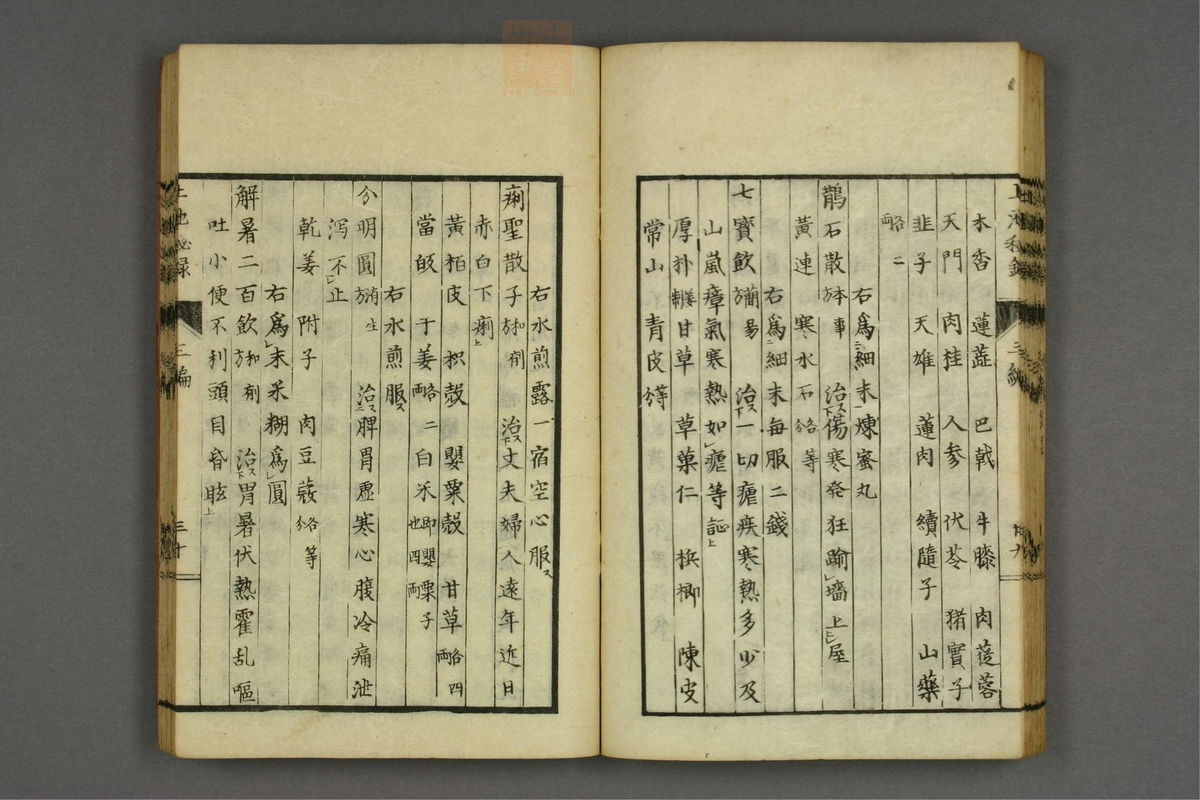 木香 蓮蕋 巴戟 牛膝 肉蓯蓉
天門 肉桂 人参 伏苓 猪實子
韭子 天雄 蓮肉 續隨子 山藥
略二
右為細末煉蜜丸
鵲石散本事方 治傷寒発狂踰墻上屋
黃連 寒水石各等分
右為細末每服二錢
七寳飲簡易方 治一切瘧疾寒熱多少及
山嵐瘴氣寒熱如瘧等証
厚朴 甘草 草菓仁 梹榔 陳皮
常山 青皮等分
右水煎露一宿空心服
痢聖散子和剤方 治丈夫婦人遠年近日
赤白下痢
黃栢皮 枳殻 嬰粟殻 甘草略四兩
當皈 于姜略二兩 白米即嬰粟子也四兩
右水煎服
分明圓 治脾胃虚寒心腹冷痛泄
泻不止
乾姜 附子 肉豆蔲各等分
右為末米糊為圓
解暑二百飲和剤方 治胃暑伏熱霍乱嘔
吐小便不利頭目昏眩
三編
三十